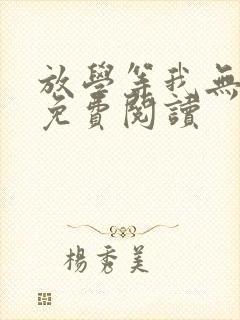 放學等我無
免費閱讀
楊秀美